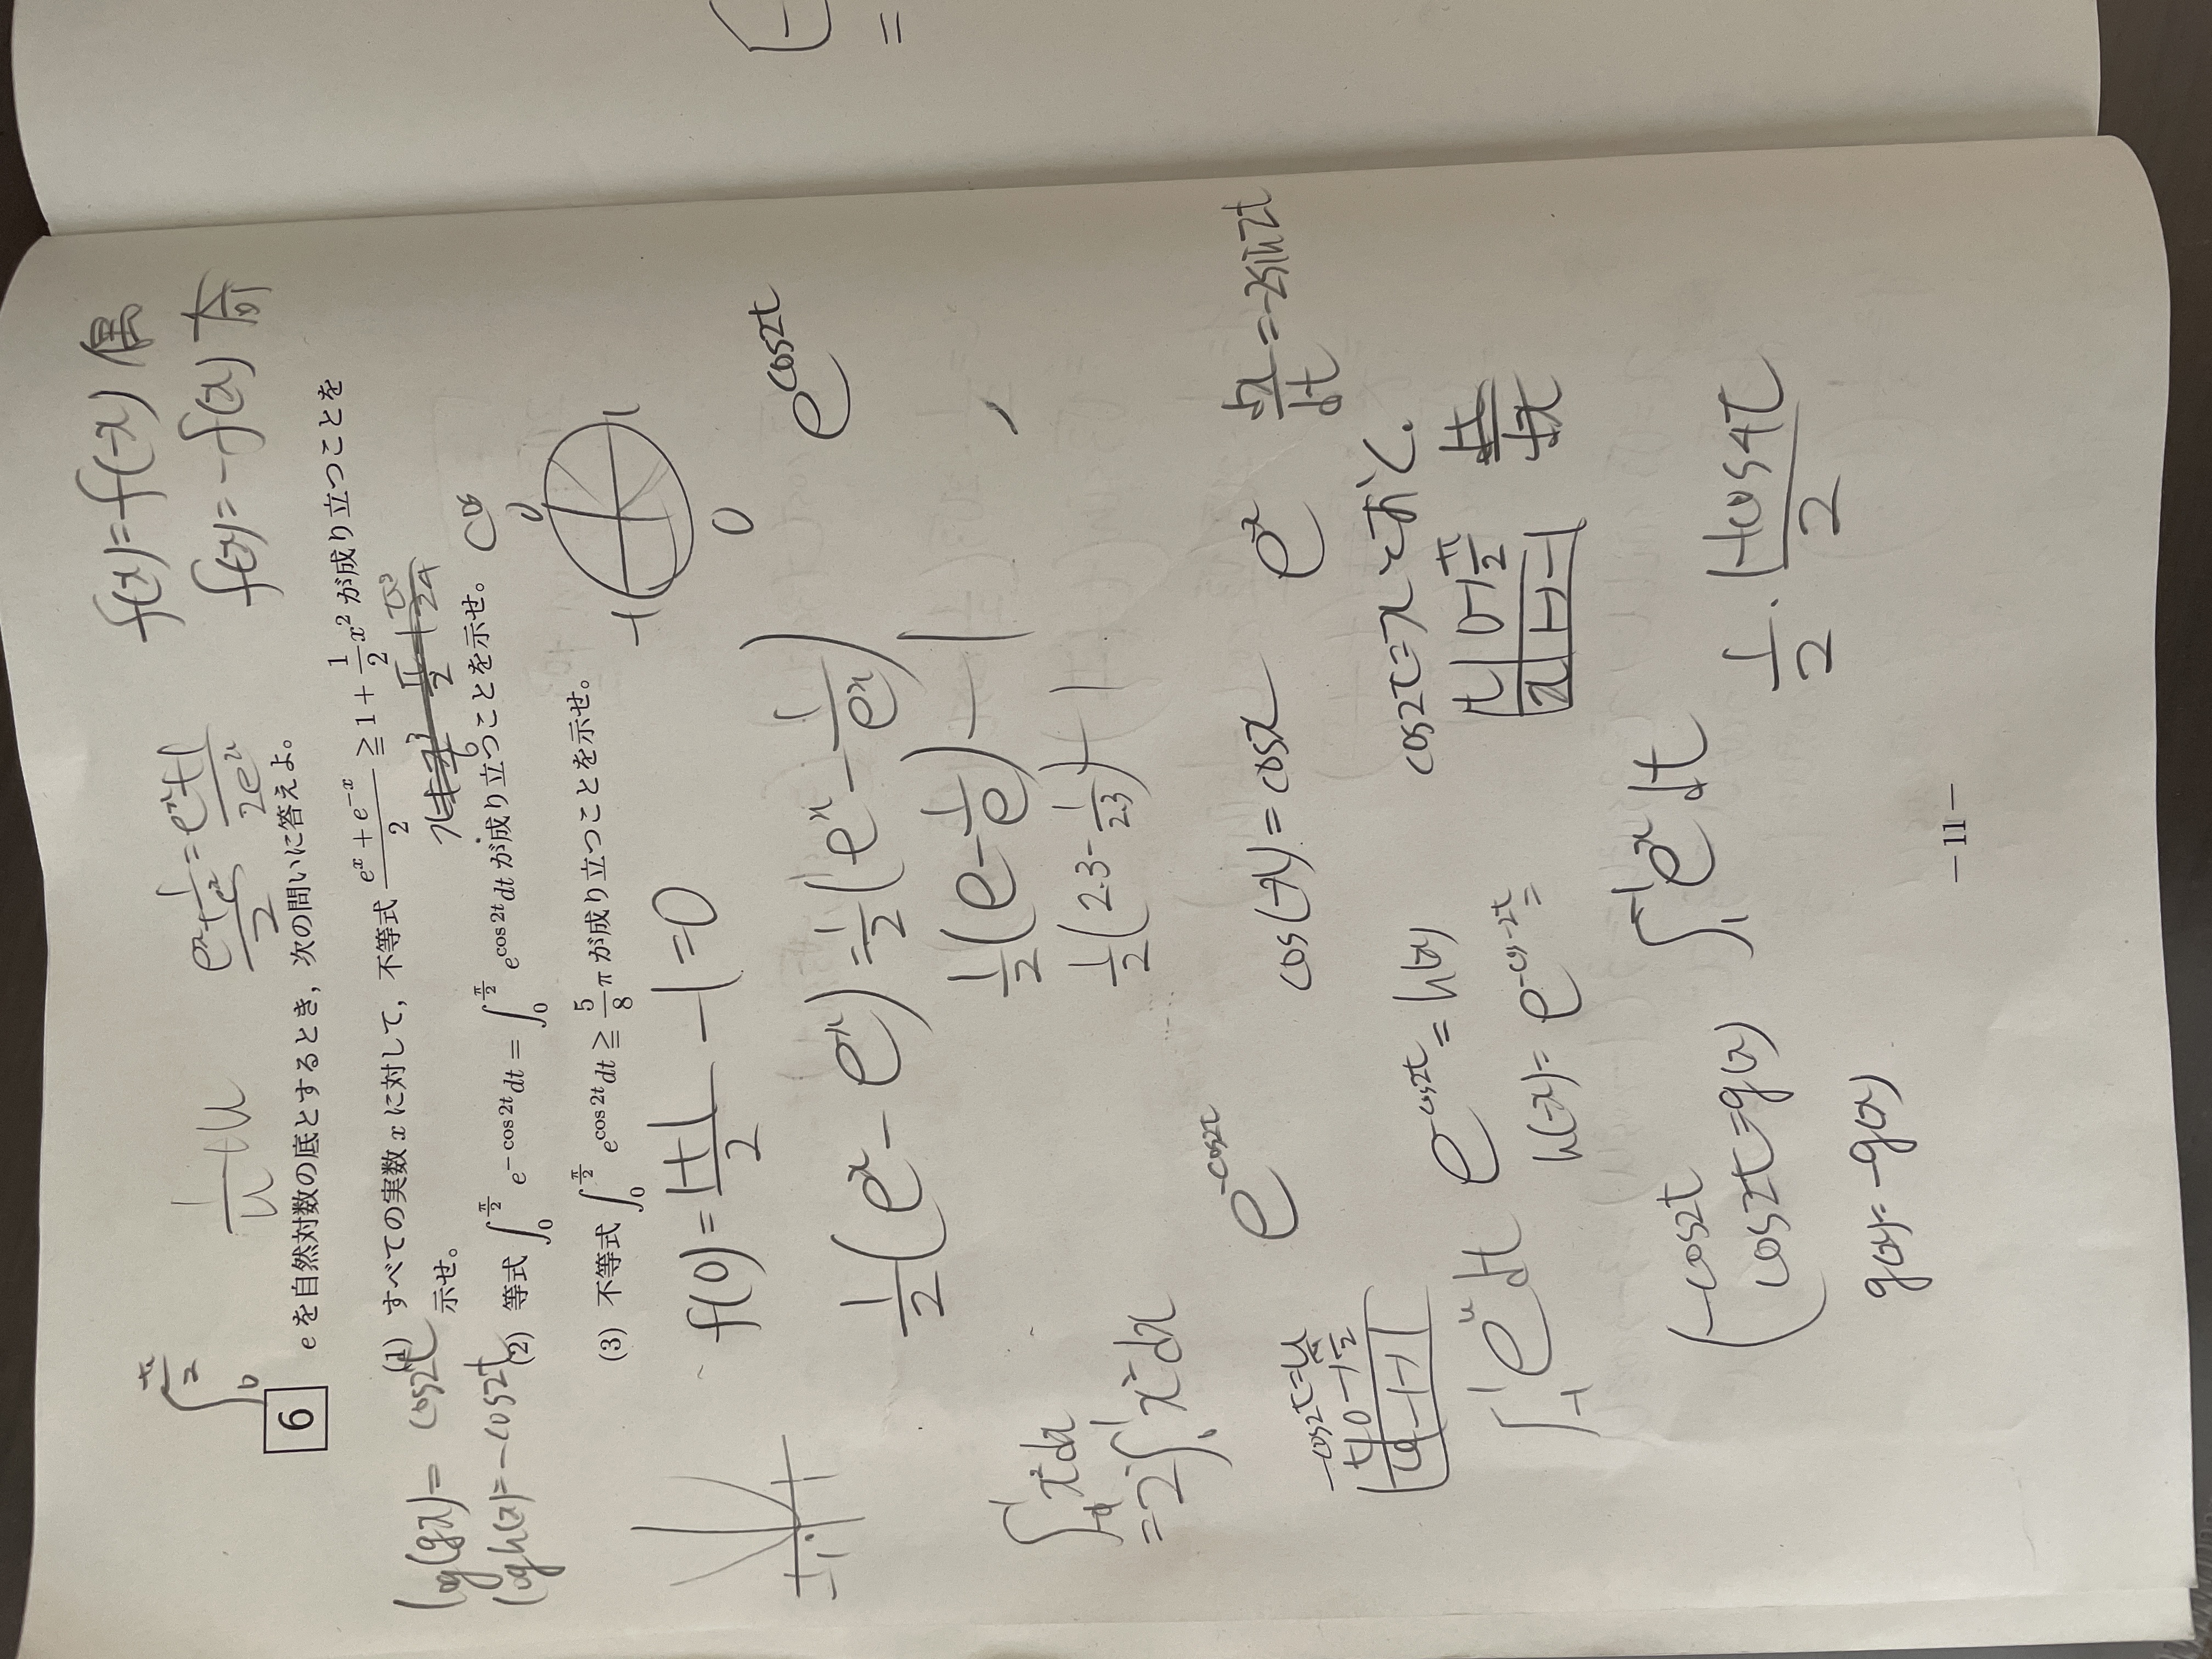 ∫₀^{π/2}
1/u + u
(e^x + 1/e^x)/2 = (e^x+1)/2e^x
f(x)=f(-x) 偶
f(x)=-f(x) 奇
6
eを自然対数の底とするとき，次の問いに答えよ。
(1) すべての実数 x に対して，不等式 (e^x + e^{-x})/2 ≧ 1 + 1/2 x² が成り立つことを
示せ。
(2) 等式 ∫₀^{π/2} e^{-cos 2t} dt = ∫₀^{π/2} e^{cos 2t} dt が成り立つことを示せ。
(3) 不等式 ∫₀^{π/2} e^{cos 2t} dt ≧ 5/8 π が成り立つことを示せ。
log(gx) = cos2t
logh(x) = -cos2t
f(0) = (1+1)/2 - 1 = 0
0
-1
1
0
1/2 (e^x - e^x) = 1/2 (e^x - 1/e^x)
e^{cos2t}
1/2 (e - 1/e) - 1
1/2 (2.3 - 1/2.3) - 1
∫₋₁^1 x² dx
= 2∫₀^1 x² dx
e^{-cos2t}
cos(-x) = cosx
e^x
-cos2t=u
t 0→π/2
u -1→1
∫₋₁^1 e^u dt
e^{-cos2t} = h(x)
h(-x) = e^{-cos-2t} =
cos2t=xとおく.
dx/dt = -2sin2t
t 0→π/2
x 1→-1
∫₁^{-1} e^x dt
-cos2t
cos2t=g(x)
g(x)= -g(x)
1/2 · (1+cos4t)/2
-11-